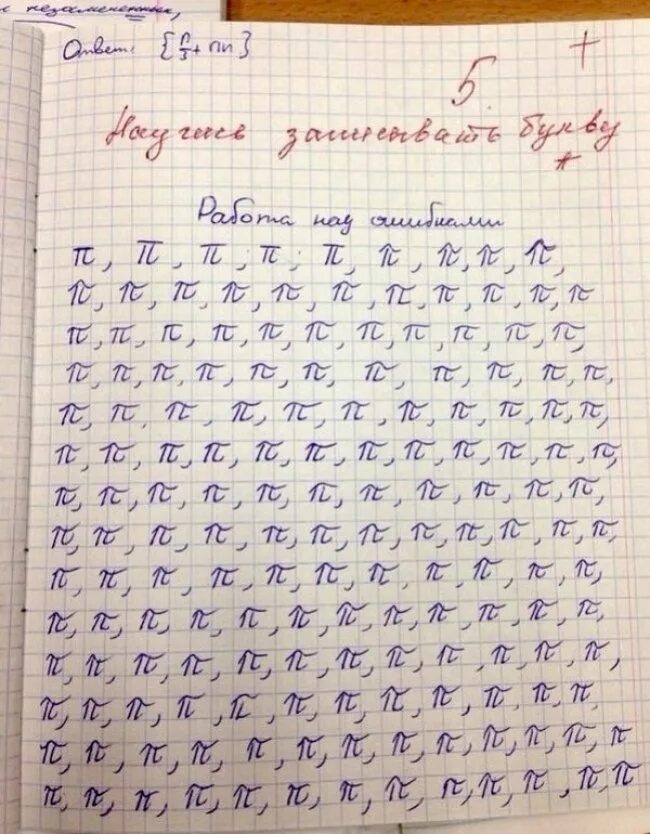 незамененных,
Ответ: {π/3 + πn}
5. +
Научись записывать букву
π
Работа над ошибками
π, π, π, π, π, π, π, π, π,
π, π, π, π, π, π, π, π, π, π, π
π, π, π, π, π, π, π, π, π, π, π,
π, π, π, π, π, π, π, π, π, π, π,
π, π, π, π, π, π, π, π, π, π, π,
π, π, π, π, π, π, π, π, π, π, π, π,
π, π, π, π, π, π, π, π, π, π, π,
π, π, π, π, π, π, π, π, π, π, π, π,
π, π, π, π, π, π, π, π, π, π, π,
π, π, π, π, π, π, π, π, π, π, π, π,
π, π, π, π, π, π, π, π, π, π, π, π,
π, π, π, π, π, π, π, π, π, π, π, π,
π, π, π, π, π, π, π, π, π, π, π, π, π
π, π, π, π, π, π, π, π, π, π, π, π, π